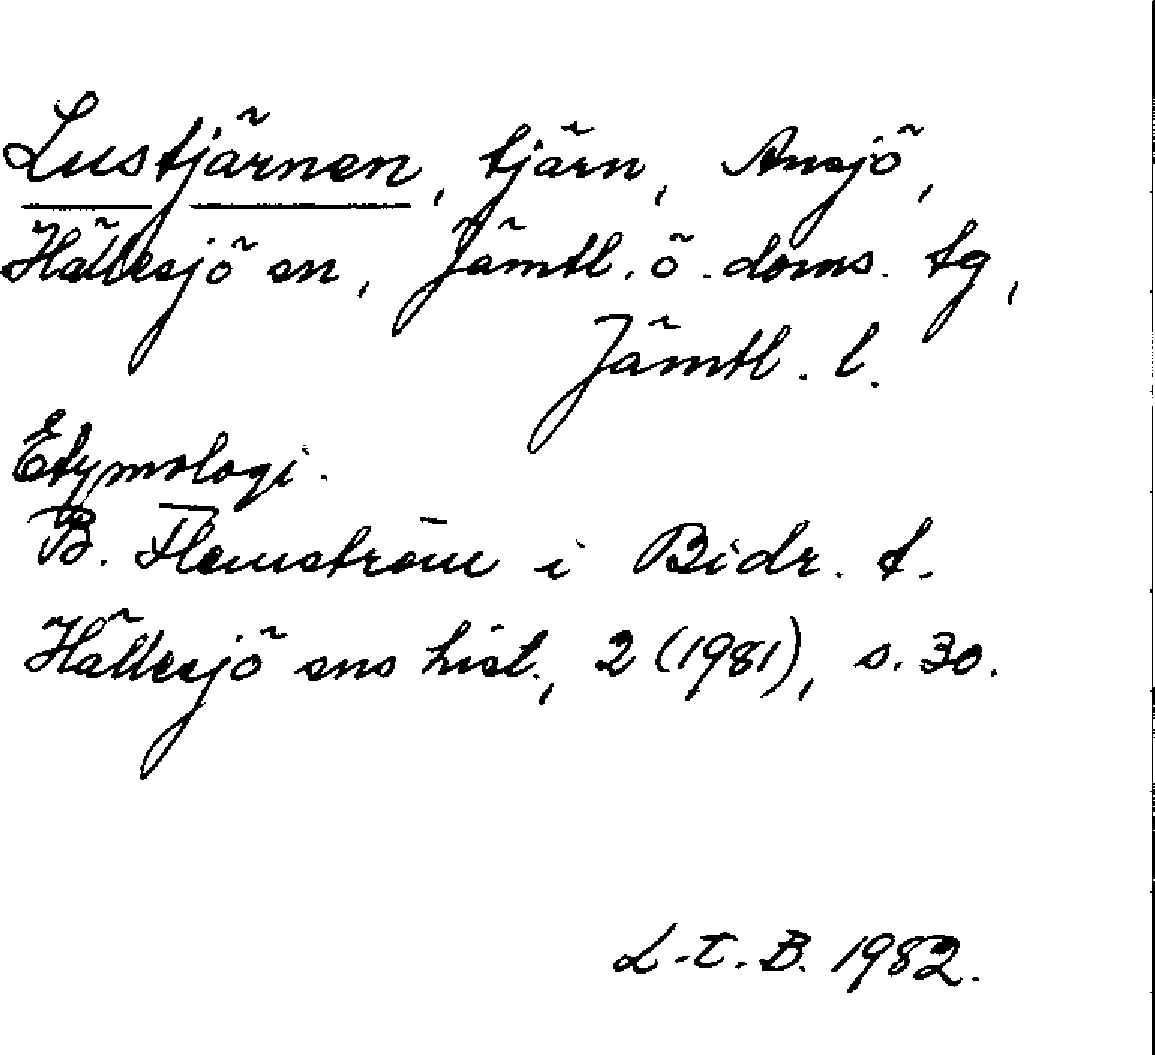 Lustjärnen, tjärn, Ansjö,
Hällesjö sn, Jämtl. ö. doms. tg,
Jämtl. l.
Etymologi.
B. Flemström i Bidr. t.
Hällesjö sns hist., 2 (1981), s. 30.
L-t. B. 1982.